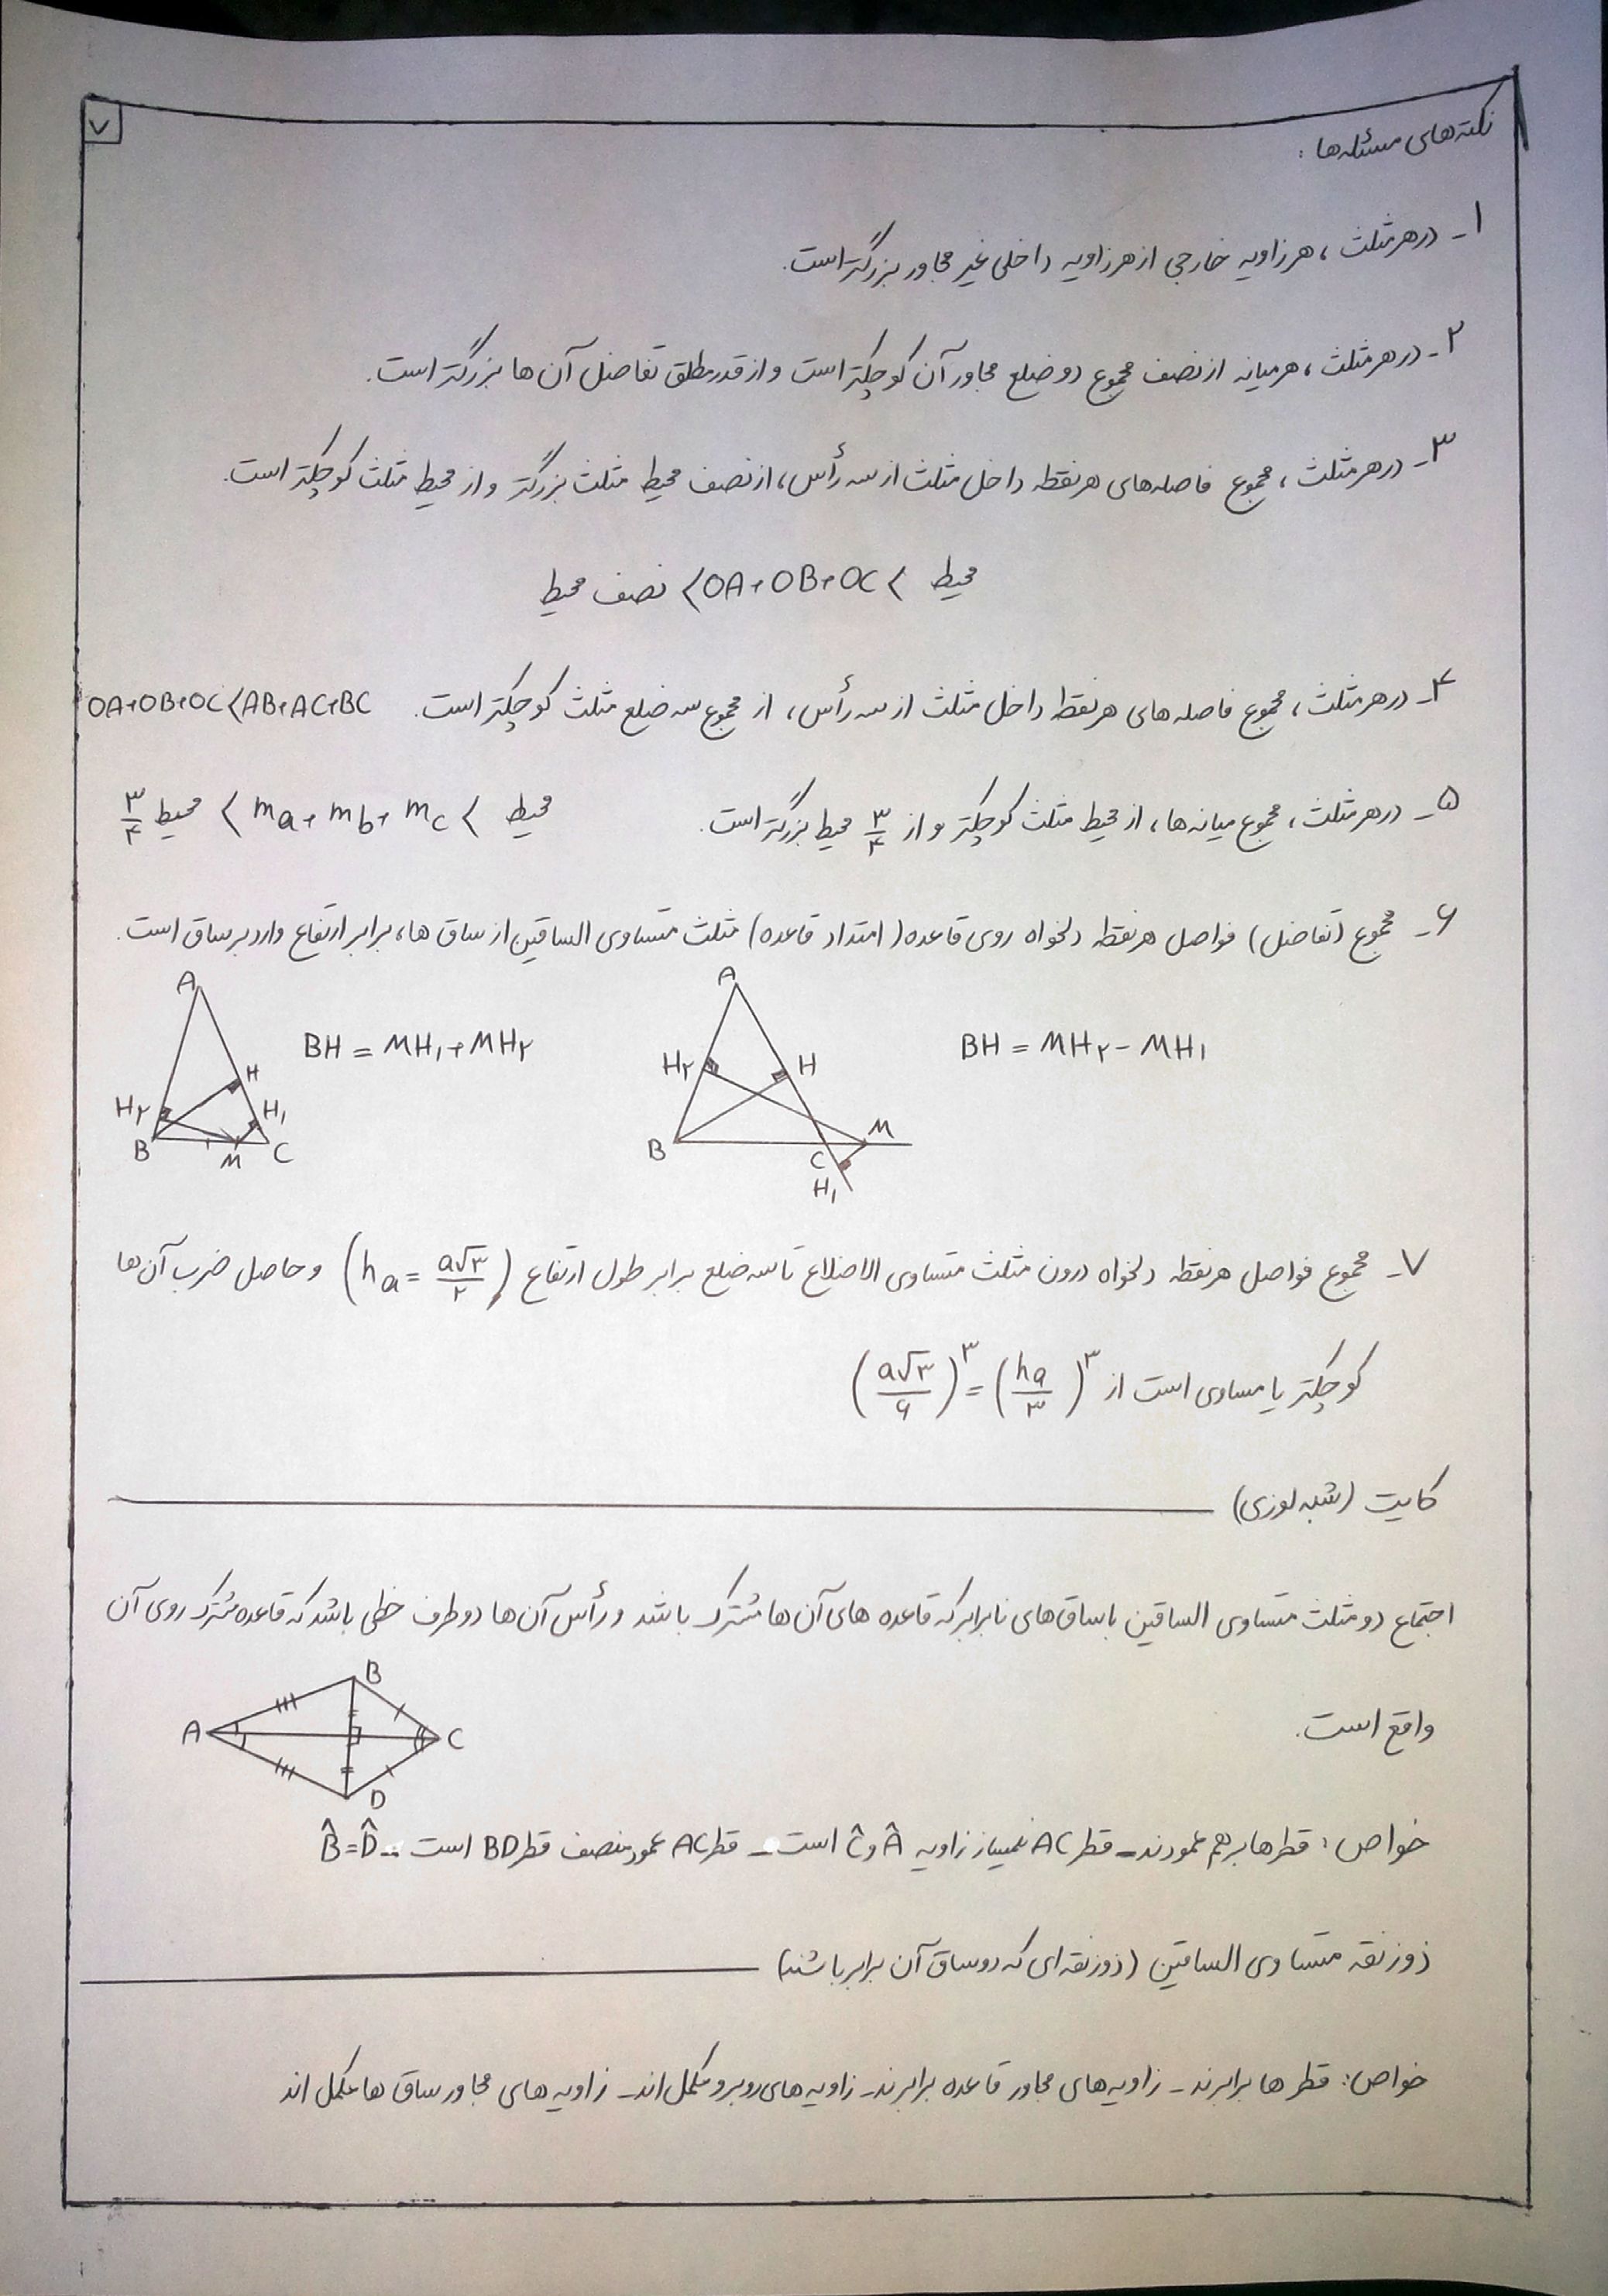 ۷
نکته‌های مسئله‌ها :
۱ـ در هر مثلث ، هر زاویه خارجی از هر زاویه داخلی غیر مجاور بزرگتر است.
۲ـ در هر مثلث ، هر میانه از نصف مجموع دو ضلع مجاور آن کوچکتر است و از قدر مطلق تفاضل آن ها بزرگتر است.
۳ـ در هر مثلث ، مجموع فاصله‌های هر نقطه داخل مثلث از سه رأس ، از نصف محیط مثلث بزرگتر و از محیط مثلث کوچکتر است.
نصف محیط < OA+OB+OC < محیط
۴ـ در هر مثلث ، مجموع فاصله های هر نقطه داخل مثلث از سه رأس ، از مجموع سه ضلع مثلث کوچکتر است. OA+OB+OC<AB+AC+BC
۵ـ در هر مثلث ، مجموع میانه ها ، از محیط مثلث کوچکتر و از ۳/۴ محیط بزرگتر است. ۳/۴ محیط < ma+mb+mc < محیط
۶ـ مجموع (تفاضل) فواصل هر نقطه دلخواه روی قاعده (امتداد قاعده) مثلث متساوی الساقین از ساق ها ، برابر ارتفاع وارد بر ساق است.
A
H
H۲
H۱
B
M
C
BH = MH۱+MH۲
A
H۲
H
B
M
C
H۱
BH = MH۲-MH۱
۷ـ مجموع فواصل هر نقطه دلخواه درون مثلث متساوی الاضلاع تا سه ضلع برابر طول ارتفاع (ha = a√۳/۲) و حاصل ضرب آن ها
کوچکتر یا مساوی است از (a√۳/۶)^۳ = (ha/۳)^۳
کایت (شبه لوزی)
اجتماع دو مثلث متساوی الساقین با ساق های نابرابر که قاعده های آن ها مشترک باشد و رأس آن ها دو طرف خطی باشد که قاعده مشترک روی آن
واقع است.
B
A
C
D
خواص : قطر ها بر هم عمودند ـ قطر AC نیمساز زاویه Â و Ĉ است ـ قطر AC عمود منصف قطر BD است ـ B̂=D̂
ذوزنقه متساوی الساقین (ذوزنقه ای که دو ساق آن برابر باشند)
خواص: قطر ها برابرند ـ زاویه های مجاور قاعده برابرند ـ زاویه های روبرو مکمل اند ـ زاویه های مجاور ساق ها مکمل اند